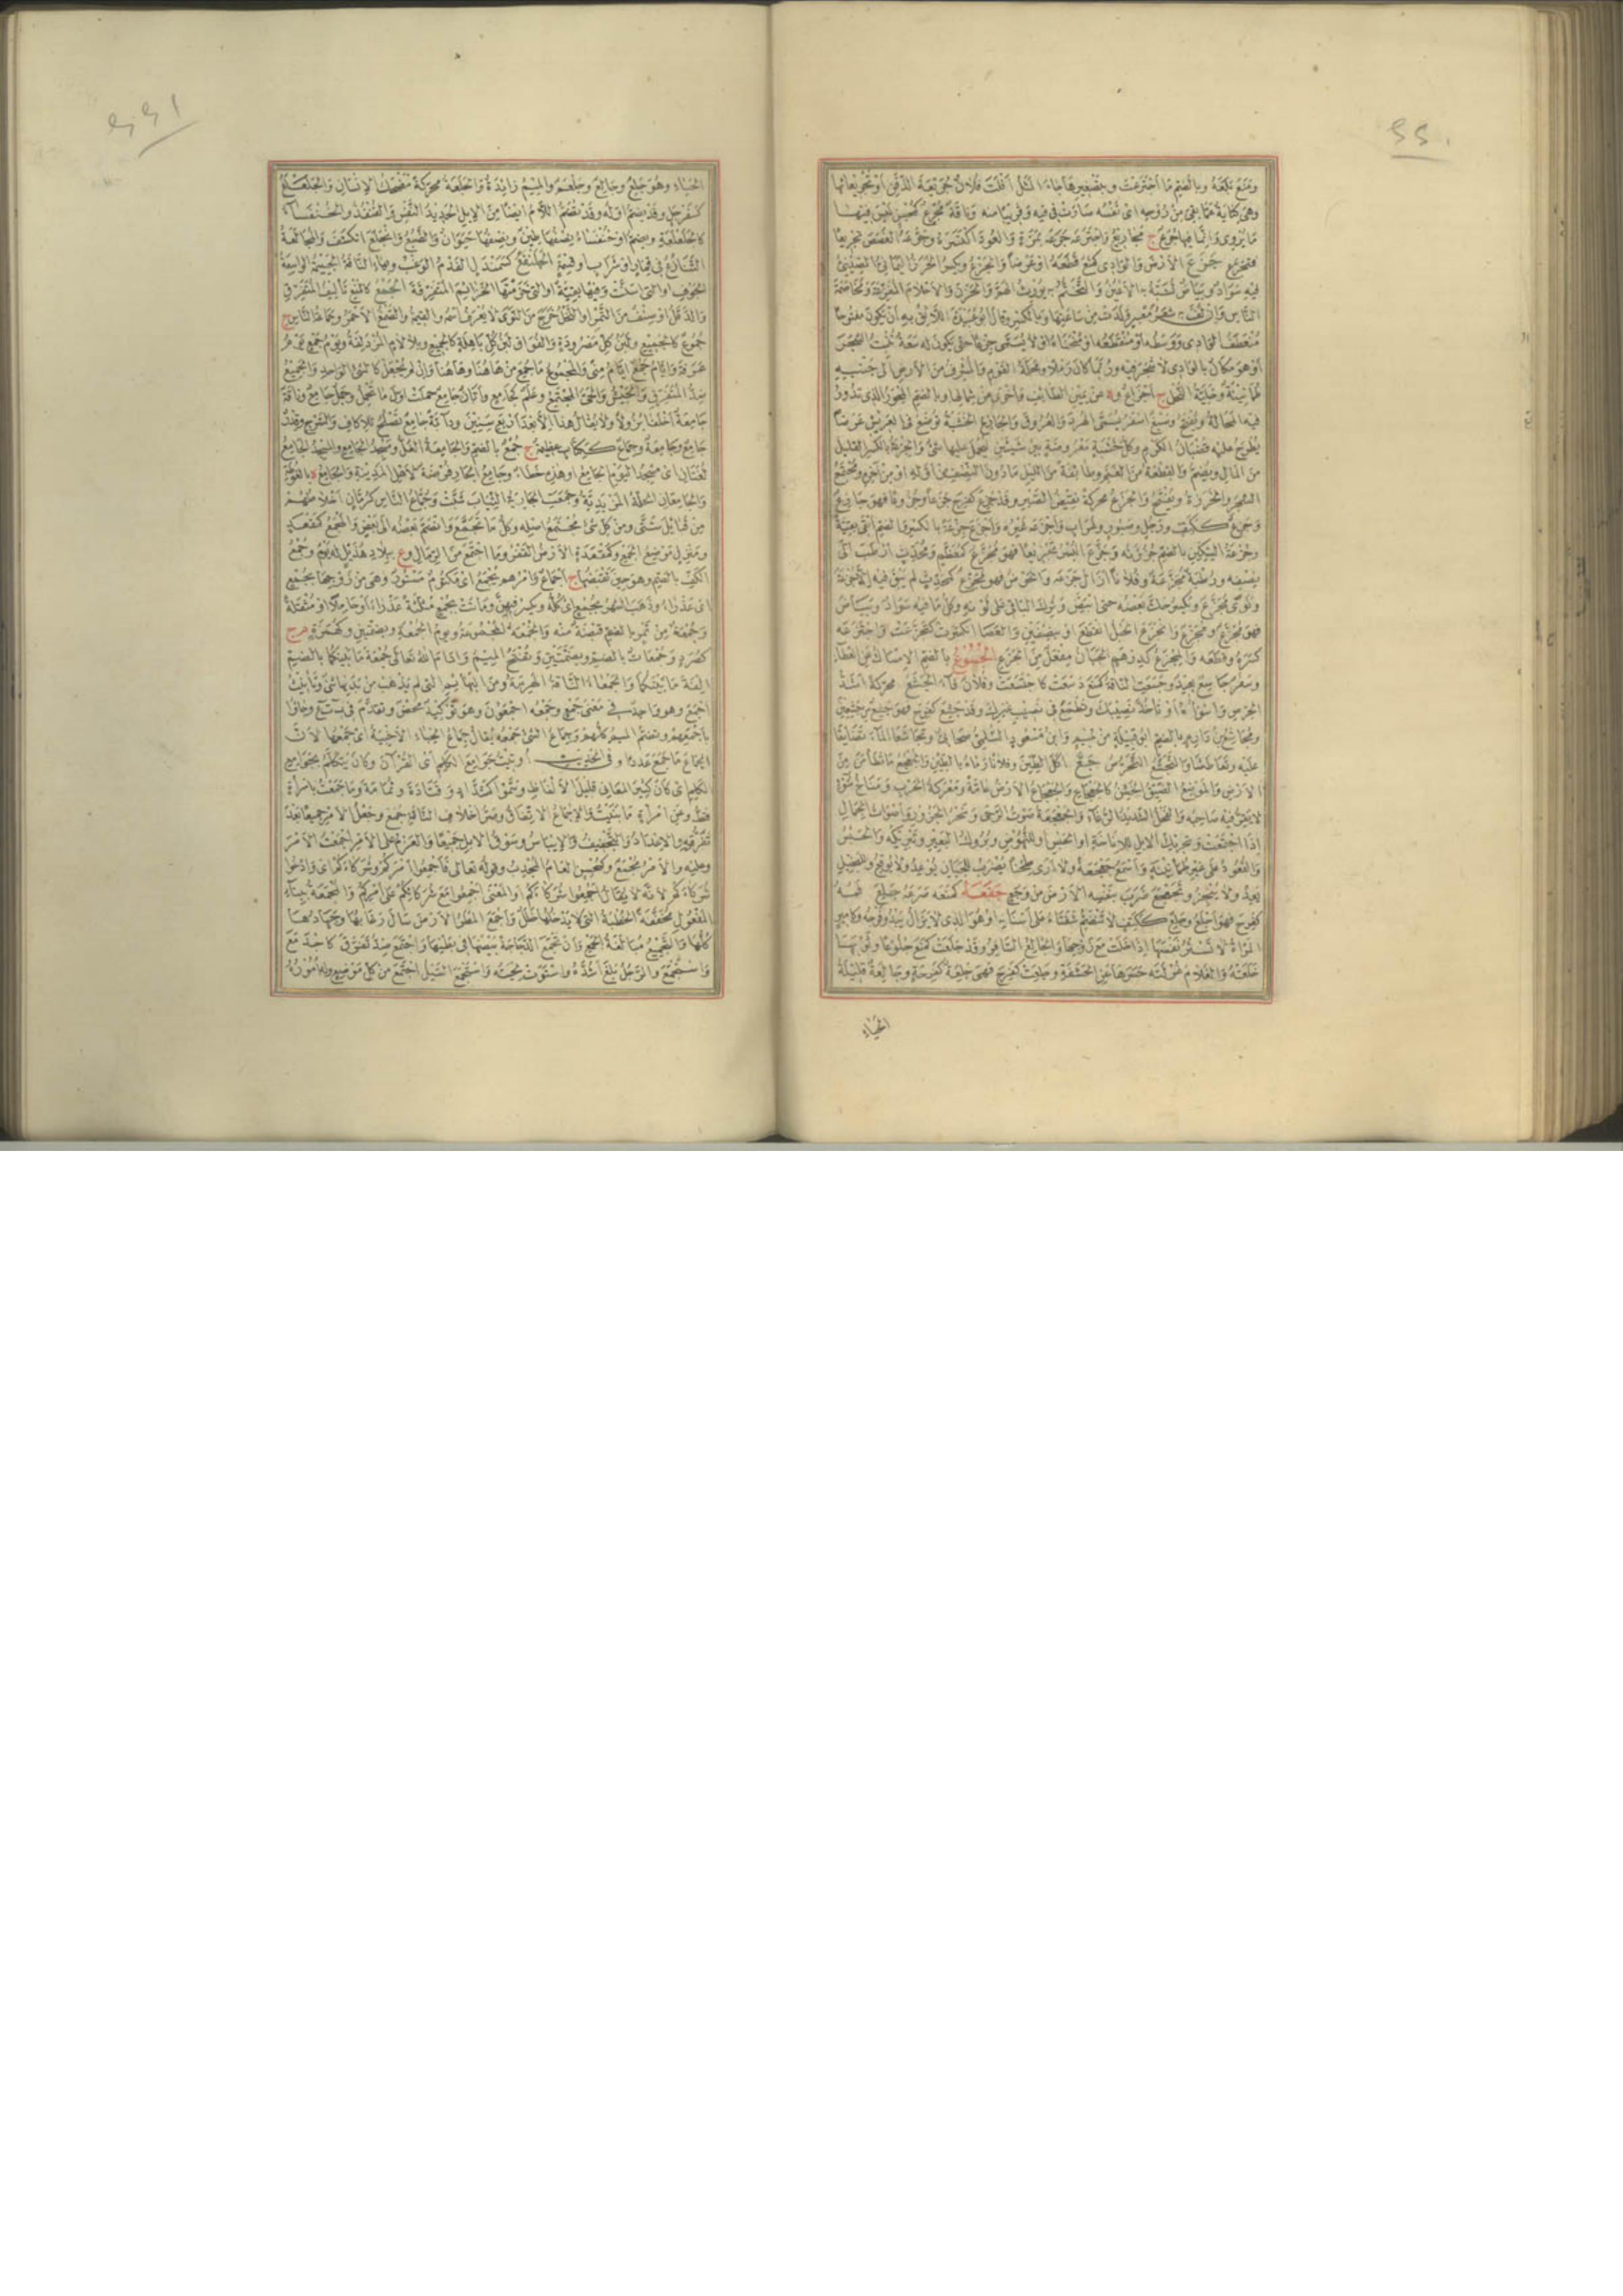 ومنع بلعه وبالضم ما اجترعت وبتصغيرها جاء المثل افلت فلان جريعة الذقن او بجريعائها
وهي كناية عما بقي من روحه اي نفسه صارت في فيه وقريبا منه وناقة مجرع كمحسن ليس فيها
ما يروي وانما فيها جرع ج مجاريع واجترعه جرعه بمرة والعود اكتسره وجرعه الغصص تجريعا
فتجرع جزع الارض والوادي كمنع قطعه او عرضا والجزع ويكسر الخرز اليماني الصيني
فيه سواد وبياض تشبه به الاعين والتختم به يورث الهم والحزن والاحلام المفزعة ومخاصمة
الناس وان لف به شعر معسر ولدت من ساعتها وبالكسر وقال ابو عبيدة اللائق به ان يكون مفتوحا
منعطف الوادي ووسطه او منقطعه او منحناه او لا يسمى جزعا حتى يكون له سعة تنبت الشجر
او هو مكان بالوادي لا شجر فيه وربما كان رملا ومحلة القوم والمشرف من الارض الى جنبه
طمانينة وخلية النحل ج اجزاع وة عن يمين الطائف واخرى عن شمالها وبالضم المحور الذي تدور
فيه المحالة ويفتح وصبغ اصفر يسمى الهرد والعروق والجازع الخشبة توضع في العريش عرضا
يطرح عليه قضبان الكرم وكل خشبة معروضة بين شيئين ليحمل عليها شيء والجزعة بالكسر القليل
من المال ويضم والقطعة من الغنم وطائفة من الليل ما دون النصف من اوله او من آخره ومجتمع
الشجر والخرزة ويفتح والجزع محركة نقيض الصبر وقد جزع كفرح جزعا وجزوعا فهو جازع
وجزع ككتف ورجل وصبور وغراب واجزعه غيره واجزع جزعة بالكسر والضم ابقى بقية
وجزعة السكين بالضم جزاته وجزع البسر تجزيعا فهو مجزع كمعظم ومحدث ارطب الى
نصفه ورطبة مجزعة وفلانا ازال جزعه والحوض فهو مجزع كمحدث لم يبق فيه الا جزعة
ونوى مجزع ويكسر حك بعضه حتى ابيض وترك الباقي على لونه وكل ما فيه سواد وبياض
فهو مجزع ومجزع وانجزع الحبل انقطع او بنصفين والعصا انكسرت كتجزعت واجتزعه
كسره وقطعه والهجزع كدرهم الجبان هفعل من الجزع الجسوع بالضم الامساك عن العطاء
وسفر جاسع بعيد وجسعت الناقة كمنع دسعت كاجتسعت وفلان قاء الجشع محركة اشد
الحرص واسوأه او ان تاخذ نصيبك وتطمع في نصيب غيرك وقد جشع كفرح فهو جشع من جشعين
ومجاشع بن دارم بالضم ابو قبيلة من تميم وابن مسعود السلمي صحابي وتجاشعا الماء تضايقا
عليه وتعاطشا والتجشع التحرص جع اكل الطين وفلانا رماه بالطين والجعجع ما تطامن من
الارض والموضع الضيق الخشن كالجعجاع والجعجاع الارض عامة ومعركة الحرب ومناخ سوء
لا يقر فيه صاحبه والفحل الشديد الرغاء والجعجعة صوت الرحى ونحر الجزور واصوات الجمال
اذا اجتمعت وتحريك الابل للاناخة او الحبس او للنهوض وبروك البعير وتبريكه والحبس
والقعود على غير طمانينة واسمع جعجعة ولا ارى طحنا يضرب للجبان يوعد ولا يوقع وللبخيل
يعد ولا ينجز وتجعجع ضرب بنفسه الارض من وجع جفعه كمنعه صرعه جلع فمه
كفرح فهو اجلع وجلع ككتف لا تنضم شفتاه على اسنانه او هو الذي لا يزال يبدو فرجه وكامير
المرأة لا تستر نفسها اذا خلت مع زوجها والجالع السافر وقد جلعت كمنع جلوعا وثوبها
خلعته والغلام غرلته حسرها عن الحشفة وجلعت كفرح فهي جلعة كفرحة وجالعة قليلة
الحياء
الحياء وهو جلع وجالع وجلعم والميم زائدة والجلعة محركة مضحك الانسان والجلعلع
كسفرجل وقد يضم اوله وقد تضم اللام ايضا من الابل الحديد النفس والقنفذ والخنفساء
كالجلعلعة ويضم او خنفساء نصفها طين ونصفها حيوان والضبع وانجلع انكشف والمجالعة
التنازع في قمار او شراب او قسمة الجلنفع كسمندل الفدم الوغب وبهاء الناقة الجسيمة الواسعة
الجوف او التي اسنت وفيها بقية او التي خزمتها الخزائيم المتفرقة الجمع كالمنع تاليف المتفرق
والدقل او صنف من التمر او النخل خرج من النوى لا يعرف اسمه والقيمة والصمغ الاحمر وجماعة الناس ج
جموع كالجميع ولبن كل مصرورة والفواق لبن كل باهلة كالجميع وبلا لام المزدلفة ويوم جمع يوم
عرفة وايام جمع ايام منى والمجموع ما جمع من هاهنا وهاهنا وان لم يجعل كالشيء الواحد والجميع
ضد المتفرق والجيش والحي المجتمع وعلم كجامع واتان جامع حملت اول ما تحمل وجمل جامع وناقة
جامعة اخلفا بزولا ولا يقال هذا الا بعد اربع سنين ودابة جامع تصلح للاكاف والسرج وقدر
جامع وجامعة وجماع ككتاب عظيمة ج جمع بالضم والجامعة الغل ومسجد الجامع والمسجد الجامع
لغتان اي مسجد اليوم الجامع او هذه خطأ وجامع الجار فرضة لاهل المدينة والجامع ة بالغوطة
والجامعان الحلة المزيدية وجمعت الجارية الثياب شبت وجماع الناس كرمان اخلاطهم
من قبائل شتى ومن كل شيء مجتمع اصله وكل ما تجمع وانضم بعضه الى بعض والمجمع كمقعد
ومنزل موضع الجمع وكمقعدة الارض القفر وما اجتمع من الرمال وع ببلاد هذيل له يوم وجمع
الكف بالضم وهو حين تقبضها ج اجماع وامرهم بجمع اي مكتوم مستور وهي من زوجها بجمع
اي عذراء وذهب الشهر بجمع اي كله ويكسر فيهن وماتت بجمع مثلثة عذراء او حاملا او مثقلة
وجمعة من تمر بالضم قبضة منه والجمعة المجموعة ويوم الجمعة وبضمتين وكهمزة م ج
كصرد وجمعات بالضم وبضمتين وتفتح الميم وادام الله تعالى جمعة ما بينكما بالضم
الفة ما بينكما والجمعاء الناقة الهرمة ومن البهائم التي لم يذهب من بدنها شيء وتانيث
اجمع وهو واحد في معنى جمع وجمعه اجمعون وهو توكيد محض وتقدم في بتع وجاؤا
باجمعهم وتضم الميم كلهم وجماع الشيء جمعه يقال جماع الخباء الاخبية اي جمعها لان
الجماع ما جمع عددا وفي الحديث اوتيت جوامع الكلم اي القرآن وكان يتكلم بجوامع
الكلم اي كان كثير المعاني قليل الالفاظ وسموا كشداد وقتادة وثمامة وما جمعت بامرأة
قط وعن امرأة ما بنيت والاجماع الاتفاق وصر اخلاف الناقة جمع وجعل الامر جميعا بعد
تفرقه والاعداد والتجفيف والايباس وسوق الابل جميعا والعزم على الامر اجمعت الامر
وعليه والامر مجمع وكمحسن العام المجدب وقوله تعالى فاجمعوا امركم وشركاءكم اي وادعوا
شركاءكم لانه لا يقال اجمعوا شركاءكم او المعنى اجمعوا مع شركائكم على امركم والمجمعة ببناء
المفعول مخففة الخطبة التي لا يدخلها خلل واجمع المطر الارض سال رغابها وجهادها
كلها والتجميع مبالغة الجمع وان تجمع الدجاجة بيضها في بطنها واجتمع ضد تفرق كاجدمع
واستجمع والرجل بلغ اشده واستوت لحيته واستجمع السيل اجتمع من كل موضع وله اموره